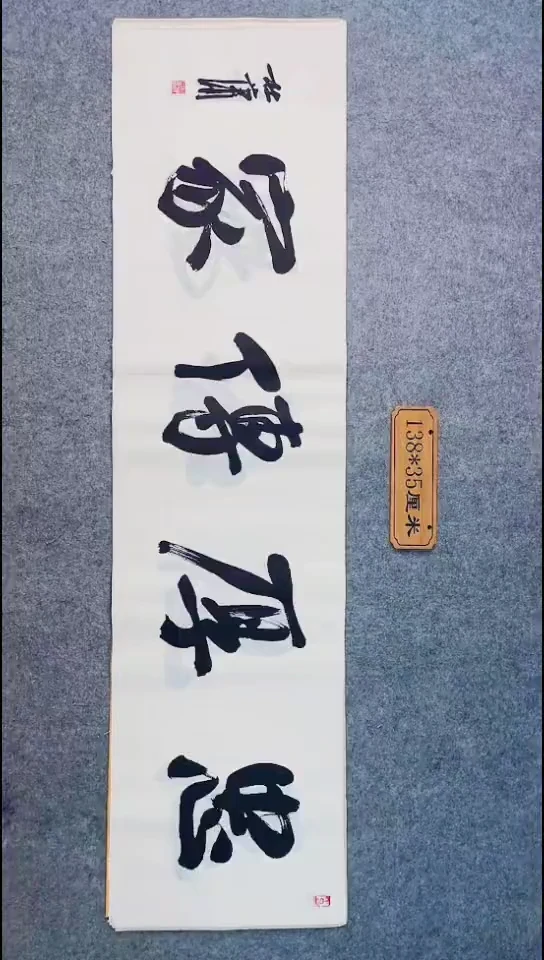 忠厚傳家
138*35厘米